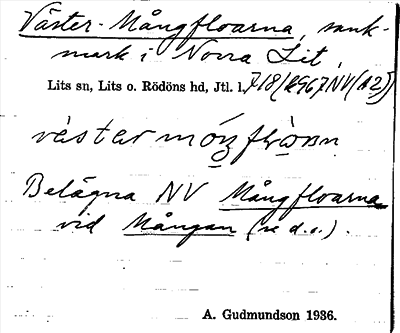 Väster-Mångfloarna, sank-
mark i Norra Lit,
Lits sn, Lits o. Rödöns hd, Jtl. l.
väster
Belägna NV Mångfloarna
vid Mångan (se d.o.).
A. Gudmundson 1936.